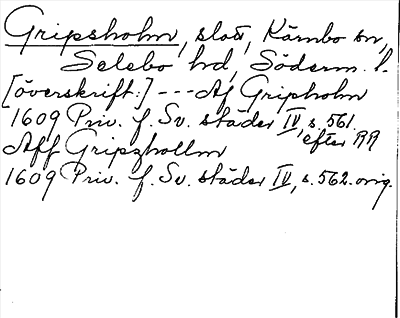 Gripsholm, slott, Kärnbo sn,
Selebo hd, Söderm. l.
[överskrift:] --- Af Gripsholm
1609 Priv. f. Sv. städer IV, s. 561.
efter RR
Aff Gripzhollm
1609 Priv. f. Sv. städer IV, s. 562. orig.